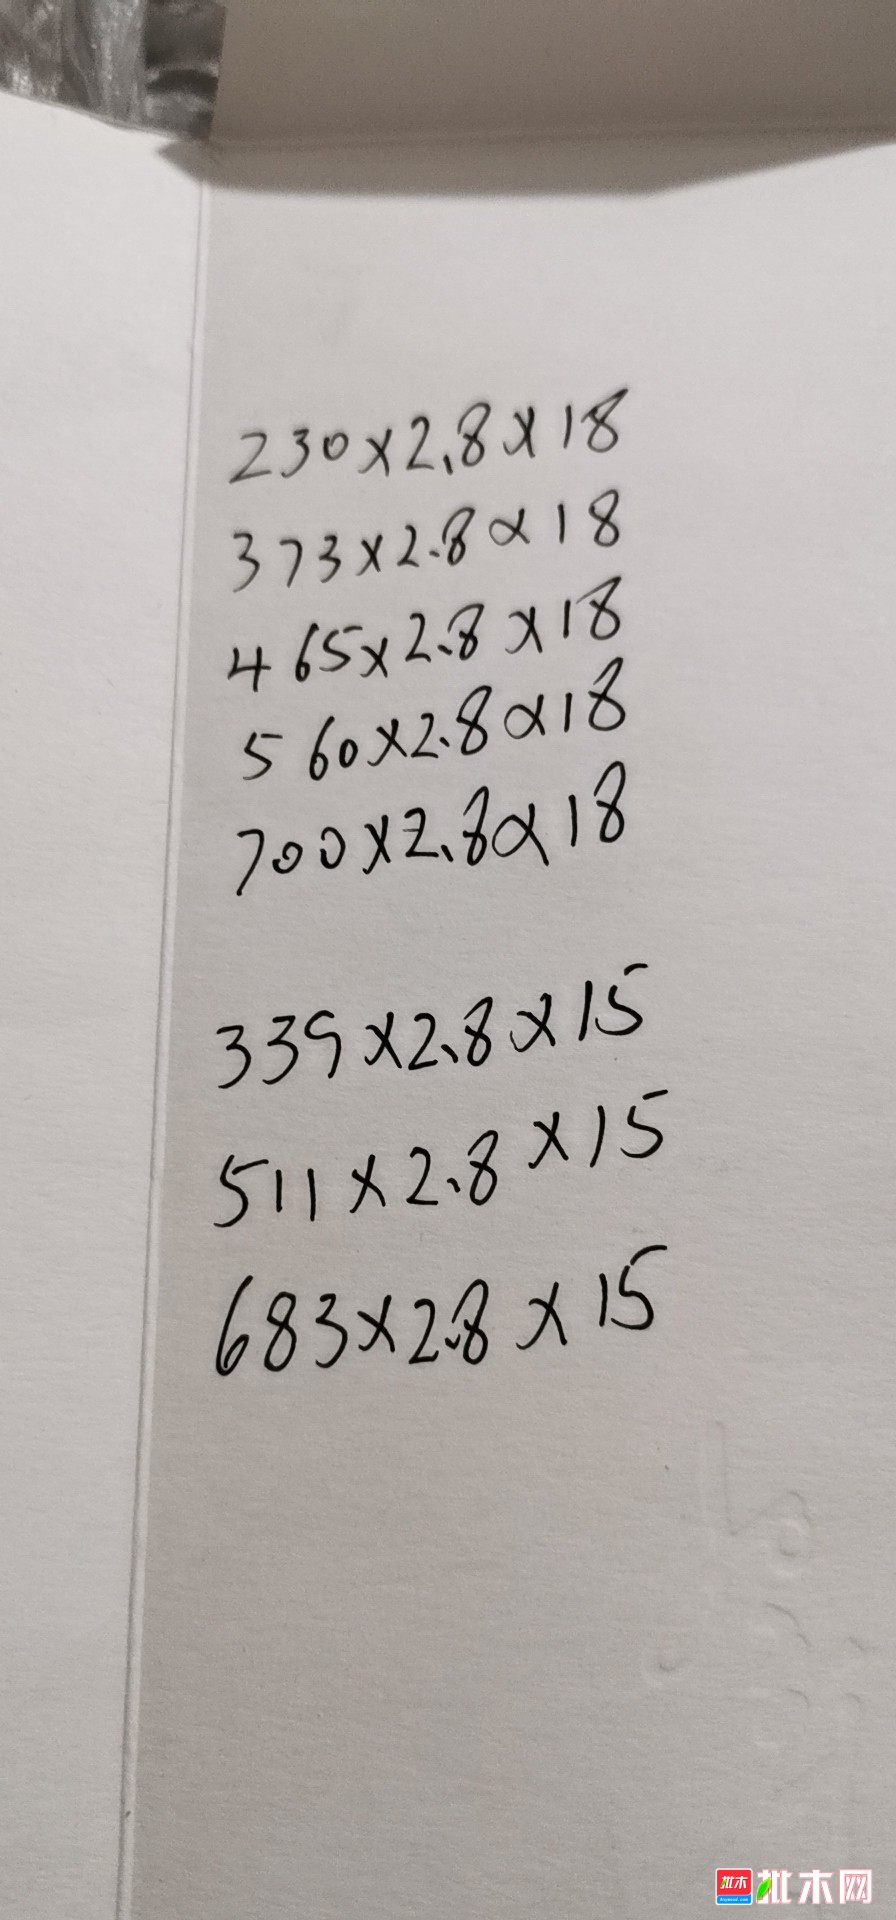 230×2.8×18
373×2.8×18
465×2.8×18
560×2.8×18
700×2.8×18
339×2.8×15
511×2.8×15
683×2.8×15
批木网